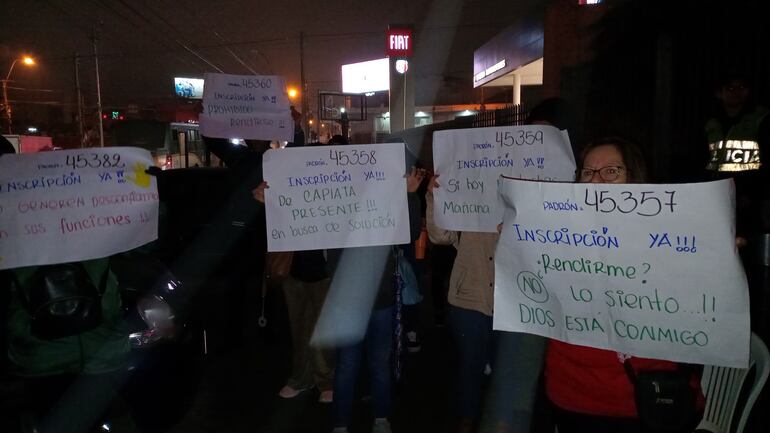 FIAT
PADRÓN: 45360
INSCRIPCIÓN YA!!!
PROHIBIDO
RENDIRSE!!
45382
INSCRIPCIÓN YA!!!
GENEREN DESCONFIANZA
en sus FUNCIONES!!!
PADRÓN: 45358
INSCRIPCIÓN YA!!!
De CAPIATA
PRESENTE!!!
en busca de SOLUCIÓN
PADRÓN: 45359
INSCRIPCIÓN YA!!!
Si hoy
Mañana
PADRÓN: 45357
INSCRIPCIÓN YA!!!
¿Rendirme?
NO lo siento...!!
DIOS ESTÁ CONMIGO
POLICIA